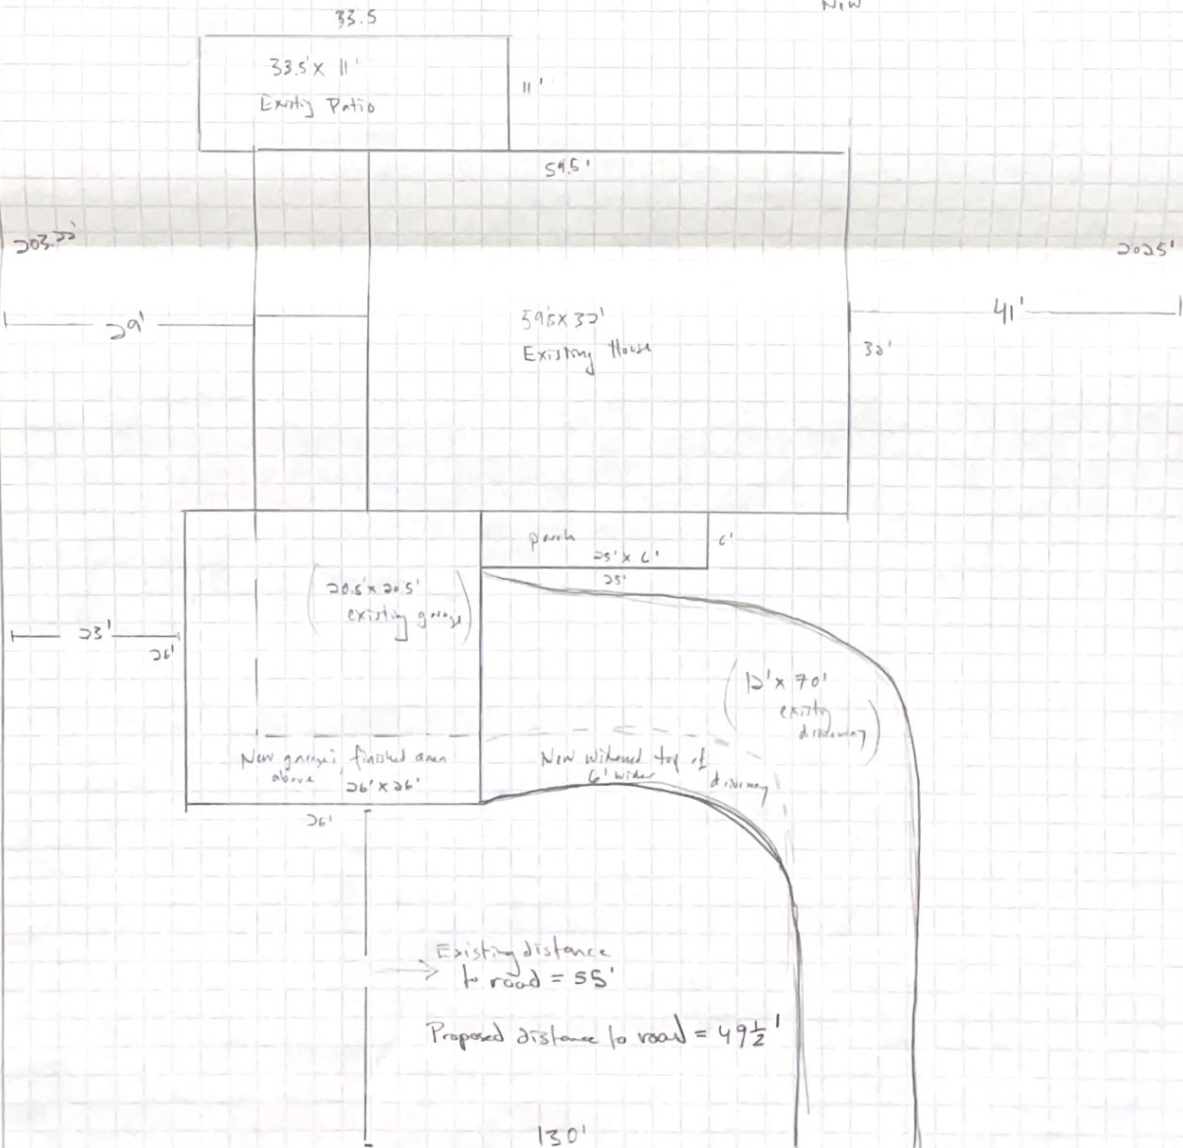 New
33.5
33.5' x 11'
Existing Patio
11'
59.5'
203.22'
2025'
29'
59.5 x 32'
Existing House
41'
32'
porch
25' x 6'
6'
25'
20.5' x 20.5'
existing garage
23'
26'
12' x 70'
existing
driveway
New garage; finished area
above
26' x 26'
New widened top of
6' wider
driveway
26'
Existing distance
to road = 55'
Proposed distance to road = 49 1/2'
130'